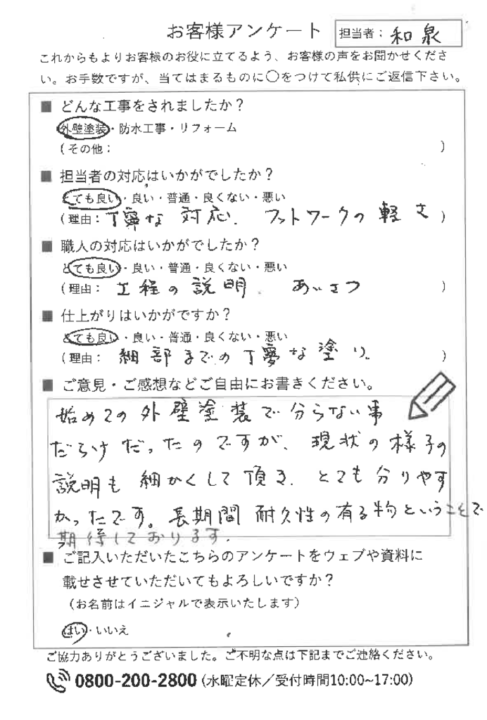 お客様アンケート 担当者: 和泉
これからもよりお客様のお役に立てるよう、お客様の声をお聞かせくださ
い。お手数ですが、当てはまるものに○をつけて私供にご返信下さい。
■ どんな工事をされましたか?
外壁塗装・防水工事・リフォーム
(その他: )
■ 担当者の対応はいかがでしたか?
とても良い・良い・普通・良くない・悪い
(理由: 丁寧な 対応、フットワークの軽さ )
■ 職人の対応はいかがでしたか?
とても良い・良い・普通・良くない・悪い
(理由: 工程の説明. あいさつ )
■ 仕上がりはいかがですか?
とても良い・良い・普通・良くない・悪い
(理由: 細部までの丁寧な塗り. )
■ ご意見・ご感想などご自由にお書きください。
始めての外壁塗装で分らない事
だらけだったのですが、現状の様子の
説明も細かくして頂き、とても分りやす
かったです。長期間耐久性の有る物ということで
期待しております.
■ ご記入いただいたこちらのアンケートをウェブや資料に
載せさせていただいてもよろしいですか?
(お名前はイニシャルで表示いたします)
はい・いいえ
ご協力ありがとうございました。ご不明な点は下記までご連絡ください。
0800-200-2800 (水曜定休/受付時間10:00~17:00)